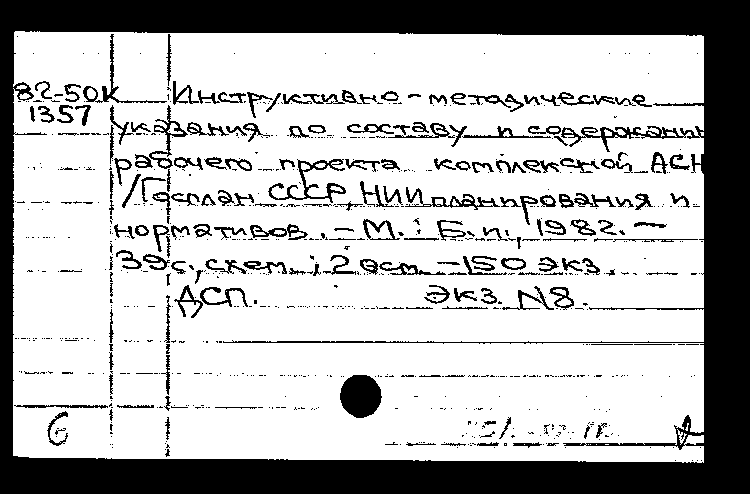 82-50К Инструктивно-методические
1357 указания по составу и содержани
рабочего проекта комплексной АСН
/Госплан СССР, НИИ планирования и
нормативов. - М. : Б.и., 1982. -
39с., схем. ; 20см. -150 экз.
ДСП. Экз. N8.
6